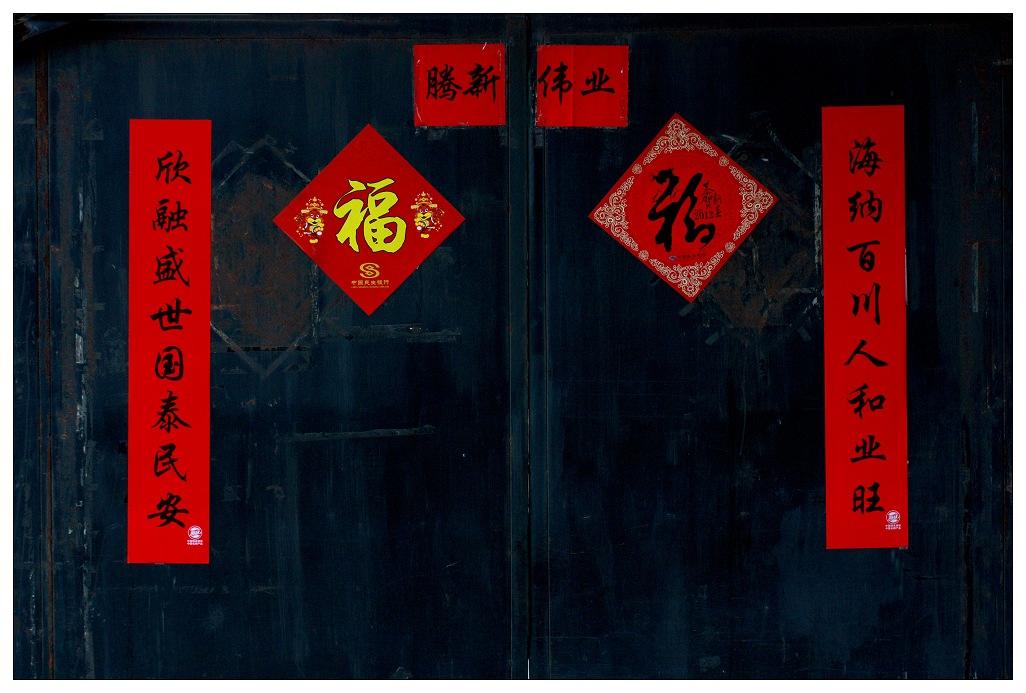 腾新伟业
欣融盛世国泰民安
福
中国民生银行
福
2012
海纳百川人和业旺